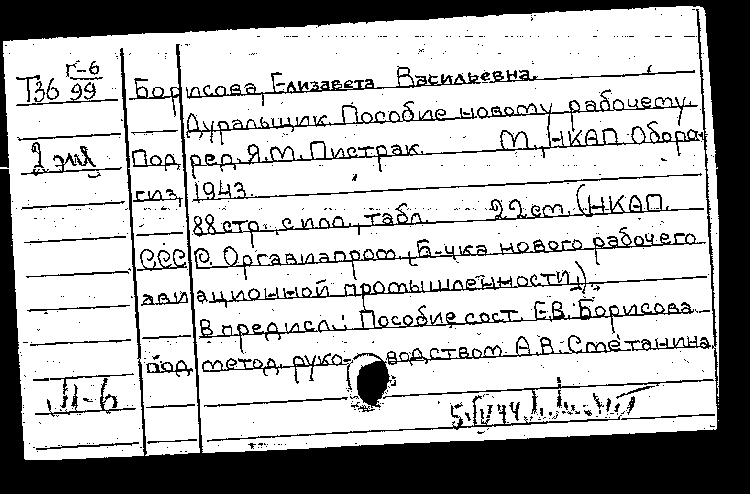 Г-6
Т36 99
Борисова, Елизавета Васильевна.
Дуральщик. Пособие новому рабочему.
2 экз
Под ред. Я.М. Пистрак. М., НКАП Оборон-
гиз, 1943.
88 стр., с илл., табл. 22 см. (НКАП.
СССР. Оргавиапром. Б-чка нового рабочего
авиационной промышленности).
В предисл.: Пособие сост. Е.В. Борисова
под метод. руководством А.В. Сметанина
М-6
5.IV 44